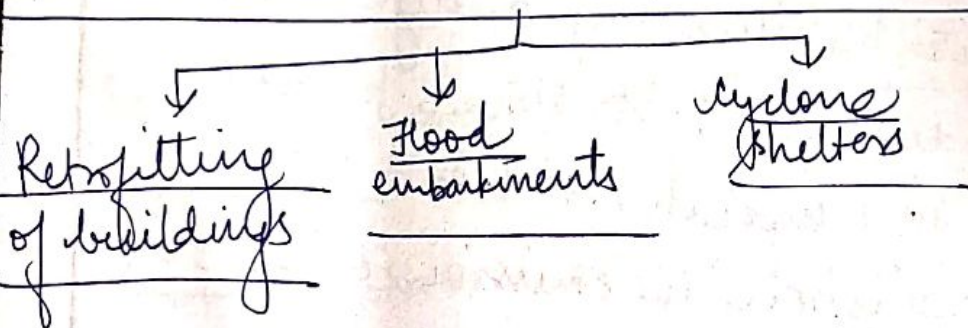 Retrofitting
of buildings
Flood
embankments
Cyclone
shelters